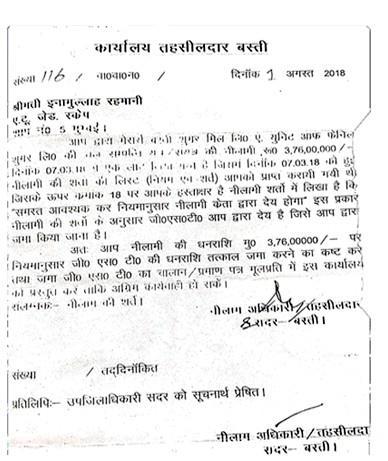 कार्यालय तहसीलदार बस्ती
संख्या 116 / ना०वा०न० दिनाँक 1 अगस्त 2018
श्रीमती इनामुल्लाह रहमानी
ए टू जेड. स्क्रेप
शाप नं० 5 मुम्बई।
आप द्वारा मैसर्स बस्ती शुगर मिल लि० ए. यूनिट आफ फेनिल
शुगर लि० की चल सम्पत्ति की नीलामी, रू० 3,76,00,000/–
दिनाँक 07.03.18 में एक लाट लिया गया है जिसमें दिनाँक 07.03.18 को हुई
नीलामी की शर्तो का लिस्ट (नियम एवं शर्त) आपको प्राप्त करायी गयी थी
जिसके ऊपर कमांक 18 पर आपके हस्ताक्षर है नीलामी शर्तो में लिखा है कि
"समस्त आवश्यक कर नियमानुसार नीलामी केता द्वारा देय होगा" इस प्रकार
नीलामी की शर्तो के अनुसार जी०एस०टी० आप द्वारा देय है जिसे आप द्वारा
जमा किया जाना है।
अतः आप नीलामी की धनराशि मु० 3,76,00000/– पर
नियमानुसार जी० एस० टी० की धनराशि तत्काल जमा करने का कष्ट करे
तथा जमा जी० एस टी० का चालान/प्रमाण पत्र मूलप्रति में इस कार्यालय
को प्रस्तुत करें ताकि अग्रिम कार्यवाही हो सकें।
संलग्नकः– नीलाम की शर्त।
नीलाम अधिकारी/तहसीलदार
सदर– बस्ती।
संख्या / तद्दिनाँकित
प्रतिलिपिः– उपजिलाधिकारी सदर को सूचनार्थ प्रेषित।
नीलाम अधिकारी/तहसीलदार
सदर– बस्ती।